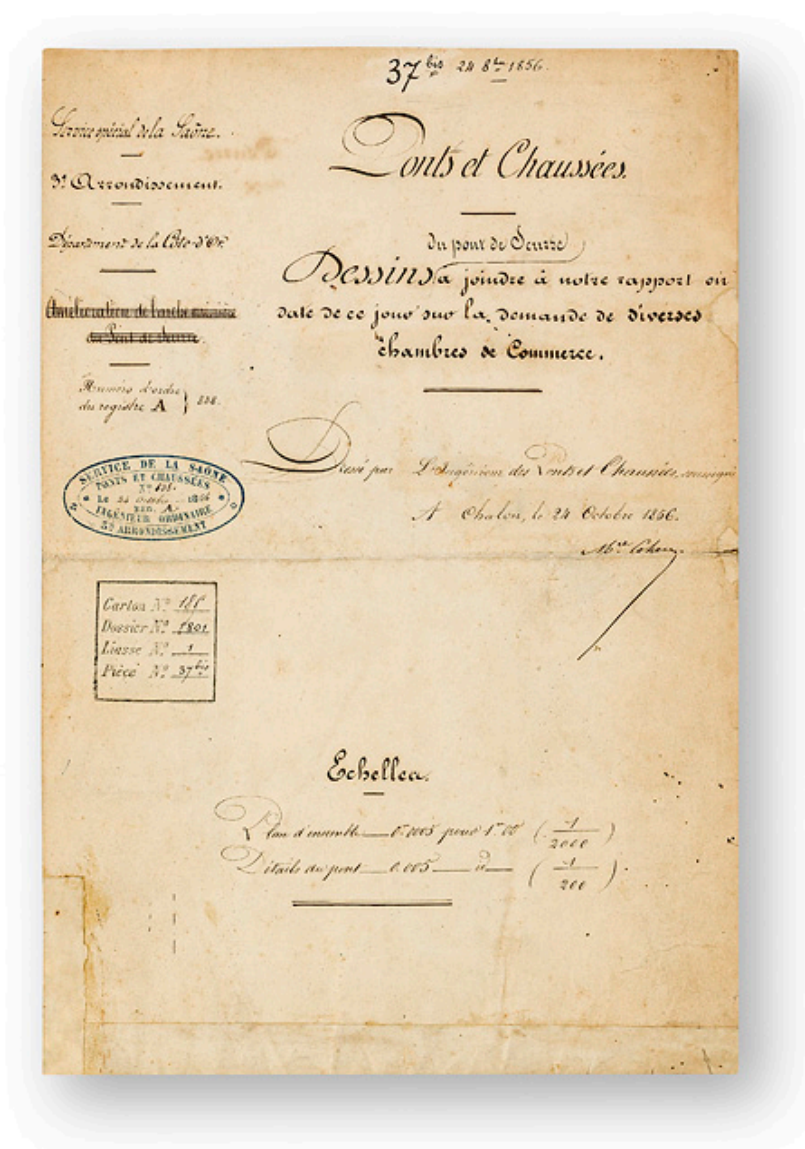 37 bis 24 8bre 1856.
Service spécial de la Saône.
3e Arrondissement.
Département de la Côte-d'Or.
Amélioration de l'arche marinière
du Pont de Seurre.
Numéro d'ordre
du registre A } 828.
SERVICE DE LA SAÔNE
PONTS ET CHAUSSÉES
N° 828.
Le 24 Octobre 1856
REG. A.
INGÉNIEUR ORDINAIRE
3e ARRONDISSEMENT
Carton N° 181
Dossier N° 1801
Liasse N° 1
Pièce N° 37 bis
Ponts et Chaussées.
du pont de Seurre
Dessins à joindre à notre rapport en
date de ce jour sur la demande de diverses
chambres de Commerce.
Dressé par L'Ingénieur des Ponts et Chaussées, soussigné
A Chalon, le 24 Octobre 1856.
Echelles.
Plan d'ensemble — 0m0005 pour 1m00 (1/2000)
Détails du pont — 0.005 — id — (1/200)